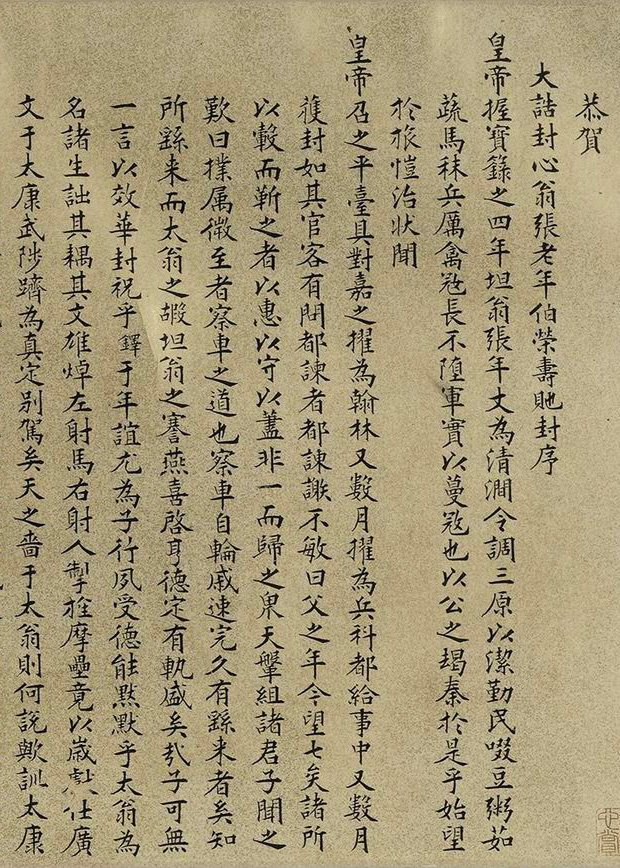 恭賀
大誥封心翁張老年伯榮壽貤封序
皇帝握寶錄之四年坦翁張年丈為清澗令調三原以潔勤民啜豆粥茹
蔬馬秣兵厲禽寇長不墮軍實以蔓寇也以公之竭秦於是乎始望
於旅愷治狀聞
皇帝召之平臺具對嘉之擢為翰林又數月擢為兵科都給事中又數月
獲封如其官客有問都諫者都諫謝不敏曰父之年今望七矣諸所
以轂而靳之者以惠以守以藎非一而歸之泉天鞶組諸君子聞之
歎曰樸属微至者察車之道也察車自輪戚速完久有繇来者矣知
所繇来而太翁之嘏坦翁之謇燕喜啓亨德定有軌盛矣㢤子可無
一言以效華封祝乎鐸于年誼尤為子行夙受德能默默乎太翁為
名諸生詘其耦其文雄焯左射馬右射人掣拴摩壘竟以歲 仕廣
文于太康武陟躋為真定别駕矣天之嗇于太翁則何說歟訓太康